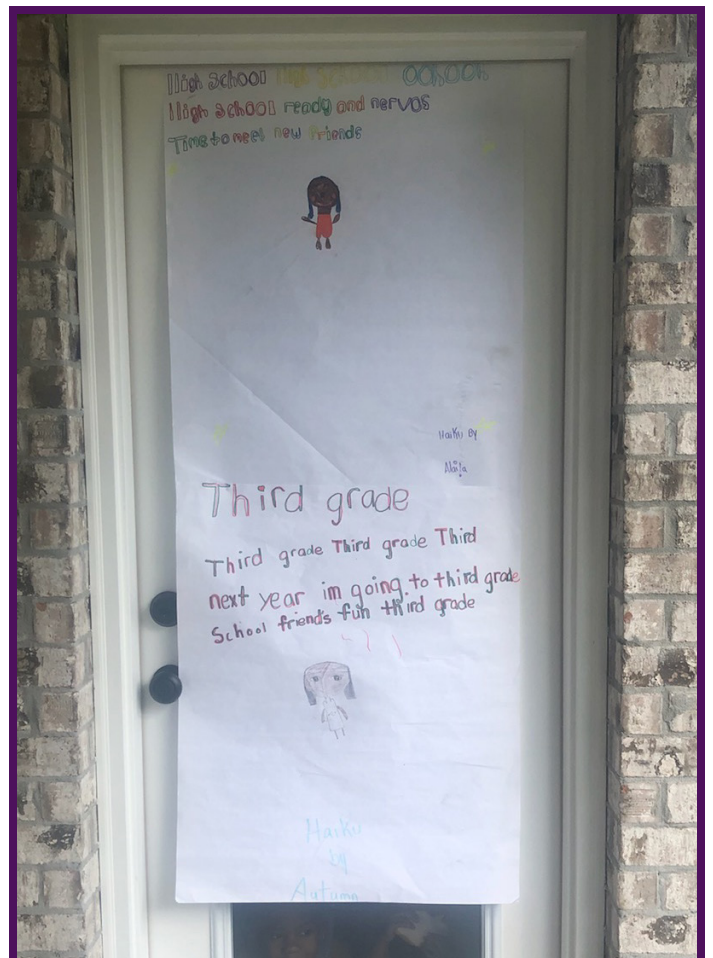 High School High School Oohooh
High School ready and nervos
Time to meet new friends
Haiku By
Third grade
Third grade Third grade Third
next year im going to third grade
School friends fun third grade
Haiku
by
Autumn